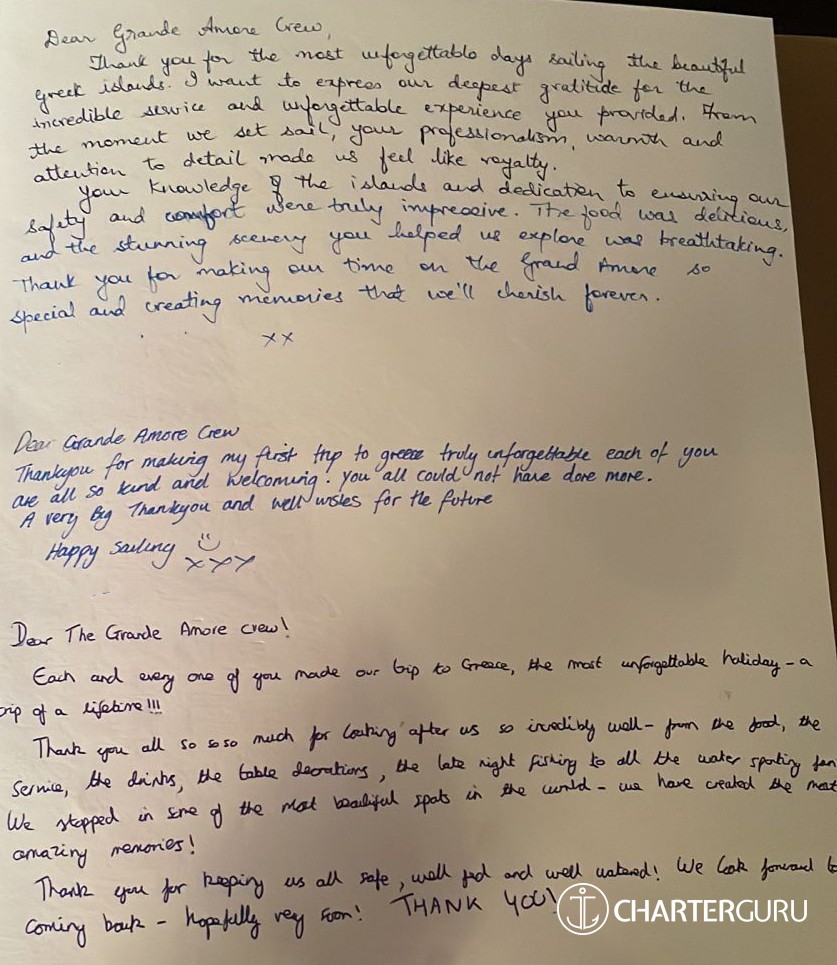 Dear Grande Amore Crew,
Thank you for the most unforgettable days sailing the beautiful
greek islands. I want to express our deepest gratitide for the
incredible service and unforgettable experience you provided. From
the moment we set sail, your professionalism, warmth and
attention to detail made us feel like royalty.
Your knowledge of the islands and dedication to ensuring our
safety and comfort were truly impressive. The food was delicious,
and the stunning scenery you helped us explore was breathtaking.
Thank you for making our time on the Grand Amore so
special and creating memories that we'll cherish forever.
xx
Dear Grande Amore Crew
Thankyou for making my first trip to greece truly unforgettable each of you
are all so kind and welcoming. you all could not have done more.
A very Big Thankyou and well wishes for the future
Happy Sailing
xxx
Dear The Grande Amore crew!
Each and every one of you made our trip to Greece, the most unforgettable holiday - a
trip of a lifetime!!!
Thank you all so so so much for looking after us so incredibly well - from the food, the
service, the drinks, the table decorations, the late night fishing to all the water sporting fun
We stopped in some of the most beautiful spots in the world - we have created the most
amazing memories!
Thank you for keeping us all safe, well fed and well watered! We look forward to
coming back - hopefully very soon! THANK YOU!
CHARTERGURU